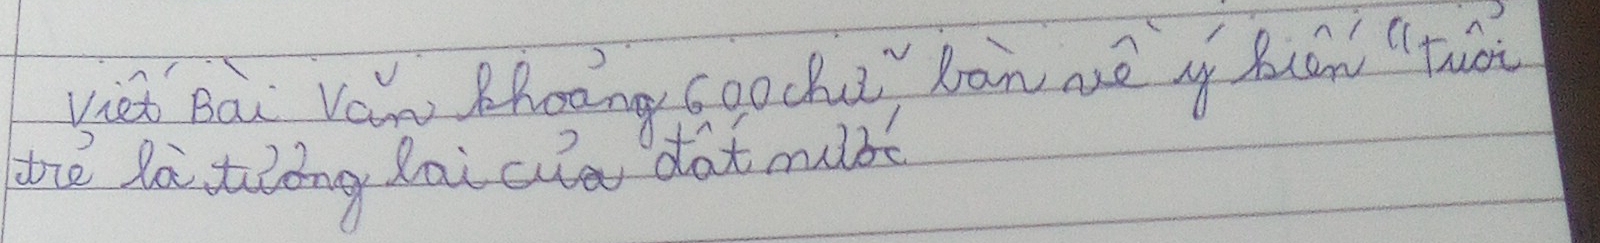 Viết Bài Văn khoảng 600 chữ bàn về ý kiến "tuổi
trẻ là tương lai của đất nước